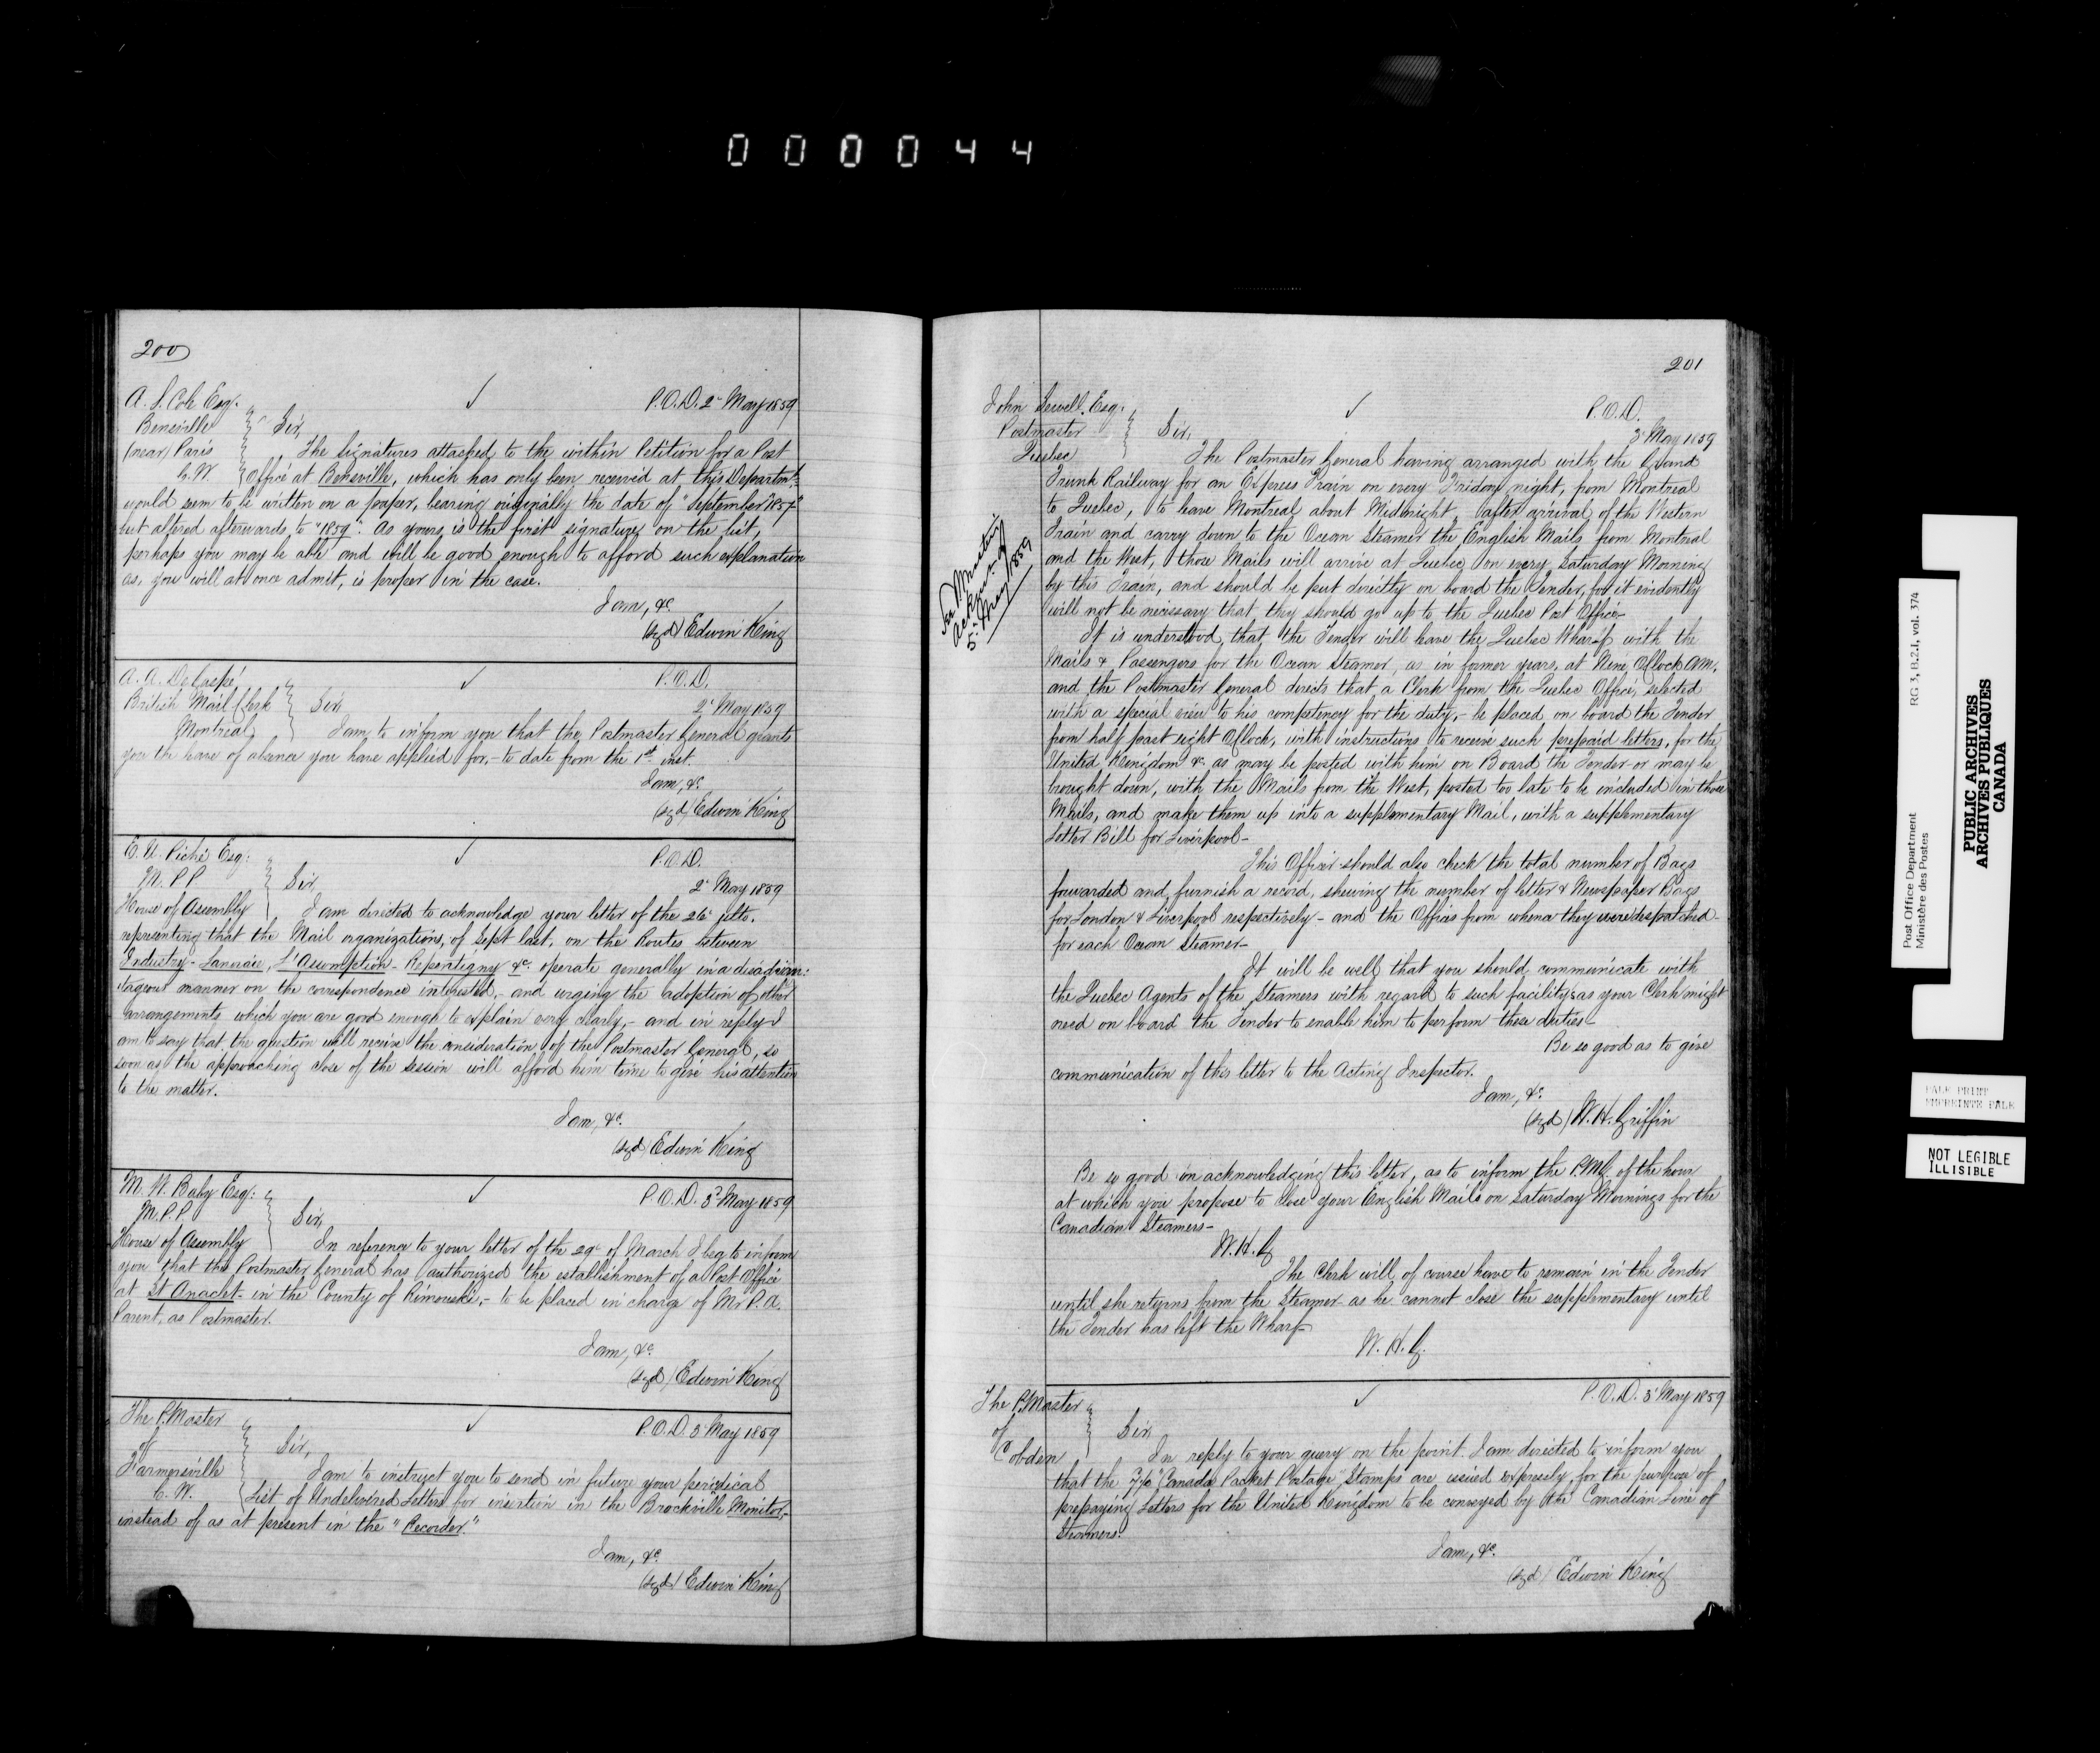 000044
200
A. S. Cole Esq.
Beneville
(near) Paris
C.W.
✓
P.O.D. 2d May 1859
Sir,
The signatures attached to the within Petition for a Post
Office at Beneville, which has only been received at this Departmt.
would seem to be written on a paper, bearing originally the date of "September 1857"
but altered afterwards to "1859". As yours is the first signature on the list,
perhaps you may be able and will be good enough to afford such explanation
as, you will at once admit, is proper in the case.
I am, &c.
(sgd) Edwin King
A. A. DeGaspé
British Mail Clerk
Montreal
✓
P.O.D.
2d May 1859
Sir,
I am to inform you that the Postmaster General grants
you the leave of absence you have applied for, - to date from the 1st inst.
I am, &c.
(sgd) Edwin King
E. U. Piché Esq:
M.P.P.
House of Assembly
✓
P.O.D.
2d May 1859
Sir,
I am directed to acknowledge your letter of the 26th ulto.
representing that the Mail organizations, of Sept last, on the Routes between
Industry - Lanoraie, L'Assomption - Repentigny &c. operate generally in a disadvan:
tageous manner on the correspondence interested, - and urging the adoption of other
arrangements which you are good enough to explain very clearly, - and in reply I
am to say that the question will receive the consideration of the Postmaster General, so
soon as the approaching close of the session will afford him time to give his attention
to the matter.
I am, &c.
(sgd) Edwin King
M. W. Baby Esq:
M.P.P.
House of Assembly
✓
P.O.D. 3d May 1859
Sir,
In reference to your letter of the 29th of March I beg to inform
you that the Postmaster General has authorized the establishment of a Post Office
at St Anaclet - in the County of Rimouski, - to be placed in charge of Mr P. A.
Parent, as Postmaster.
I am, &c.
(sgd) Edwin King
The P. Master
of
Farmersville
C.W.
✓
P.O.D. 3d May 1859
Sir,
I am to instruct you to send in future your periodical
List of Undelivered Letters for insertion in the Brockville Monitor, -
instead of as at present in the "Recorder."
I am, &c.
(sgd) Edwin King
201
John Sewell Esq:
Postmaster
Quebec
✓
P.O.D.
3d May 1859
Sir,
The Postmaster General having arranged with the Grand
Trunk Railway for an Express Train on every Friday night, from Montreal
to Quebec, to leave Montreal about Midnight, after arrival of the Western
Train and carry down to the Ocean Steamer the English Mails from Montreal
and the West, those Mails will arrive at Quebec on every Saturday Morning
by this Train, and should be put directly on board the Tender, for it evidently
will not be necessary that they should go up to the Quebec Post Office -
5th May 1859
It is understood that the Tender will leave the Quebec Wharf with the
Mails & Passengers for the Ocean Steamer, as in former years, at Nine O'Clock AM.
and the Postmaster General directs that a Clerk from the Quebec Office, selected
with a special view to his competency for the duty, - be placed on board the Tender
from half past eight O'Clock, with instructions to receive such prepaid letters, for the
United Kingdom &c. as may be posted with him on Board the Tender - or may be
brought down, with the Mails from the West, posted too late to be included in those
Mails, and make them up into a supplementary Mail, with a supplementary
Letter Bill for Liverpool -
This Officer should also check the total number of Bags
forwarded and furnish a record, shewing the number of letter & Newspaper Bags
for London & Liverpool respectively - and the Offices from whence they were despatched -
for each Ocean Steamer -
It will be well that you should communicate with
the Quebec Agents of the Steamers with regard to such facilitys as your Clerk might
need on board the Tender to enable him to perform these duties -
Be so good as to give
communication of this letter to the Acting Inspector.
I am, &c.
(sgd) W. H. Griffin
Be so good in acknowledging this letter, as to inform the P.M.G. of the hour
at which you propose to close your English Mails on Saturday Mornings for the
Canadian Steamers -
W. H. G
The Clerk will of course have to remain in the Tender
until she returns from the Steamer - as he cannot close the supplementary until
the Tender has left the Wharf -
W. H. G.
The P. Master
of
Cobden
✓
P.O.D. 3d May 1859
Sir,
In reply to your query on the point. I am directed to inform you
that the 7½d "Canada Packet Postage" Stamps are issued expressly for the purpose of
prepaying Letters for the United Kingdom to be conveyed by the Canadian Line of
Steamers.
I am, &c.
(sgd) Edwin King
Post Office Department
Ministère des Postes
RG 3, B.2.1, vol. 374
PUBLIC ARCHIVES
ARCHIVES PUBLIQUES
CANADA
PALE PRINT
EMPREINTE PALE
NOT LEGIBLE
ILLISIBLE